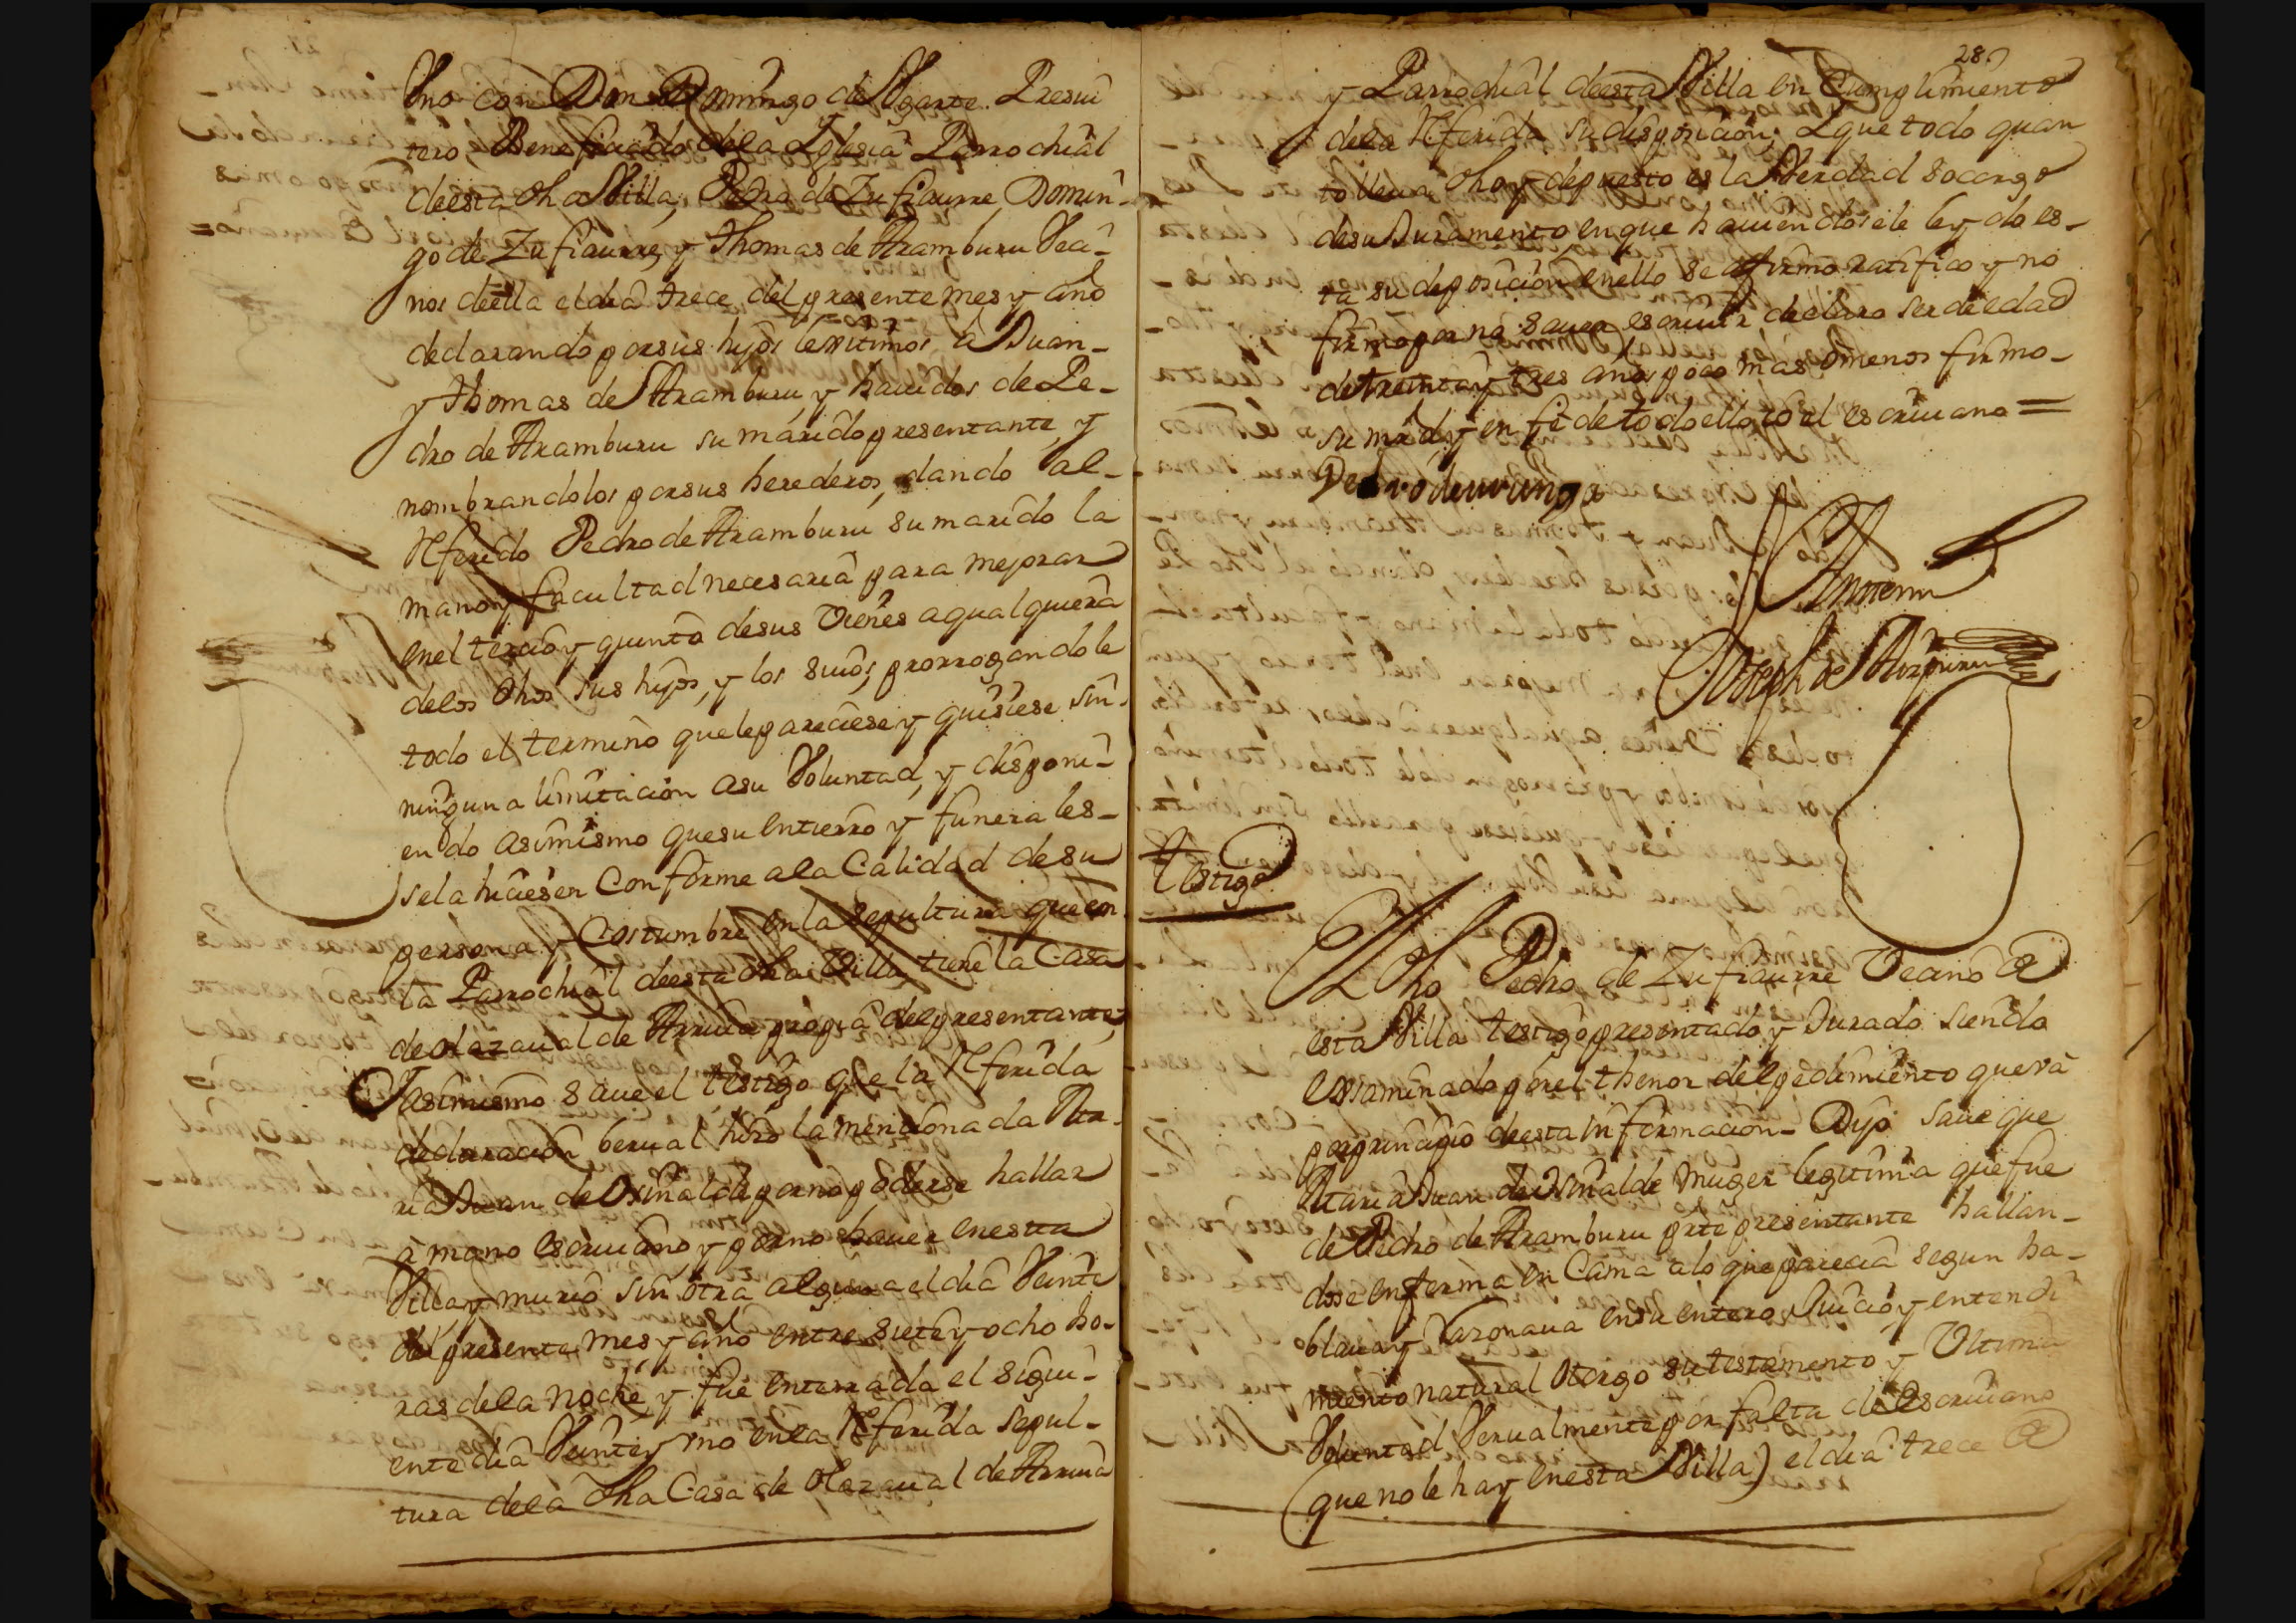 Uno con Don Domingo de Ugarte Presui
tero Beneficiado dela Iglesia Parrochial
deesta dha Villa, Pedro de Zufiaurre Domin-
go de Zufiaurre, y Thomas de Aramburu Veci-
nos deella el dia trece del presente mes y año
declarando por sus hijos lexitimos â Juan-
y Thomas de Aramburu y hauidos de Pe-
dro de Aramburu su marido presentante, y
nombrandolos por sus herederos, dando al-
Referido Pedro de Aramburu su marido la
mano y facultad necesaria para mejorar
en el tercio y quinto de sus Vienes a qualquiera
delos dhos sus hijos, y los suios, prorrogandole
todo el termino que le pareciese y quisiese sin-
ninguna limitacion asu Voluntad, y disponi-
endo asimismo que su entierro y funerales-
se la hiciesen Conforme ala Calidad de su
persona y Costumbre en la sepultura que en
la Parrochial deesta dha Villa tiene la Casa
de olazaual de Arruia propia del presentante
Y asimismo saue el testigo que la Referida
declaracion berual hizo la mencionada Ma-
ria Juan de Osinalde por no poderse hallar
à mano escriuano, y por no hauer en esta
Villa, y murio sin otra alguna el dia Veinte
del presente mes y año entre siete y ocho ho-
ras dela noche, y fue enterrada el sigui-
ente dia Veinte y uno en la Referida sepul-
tura dela dha Casa de Olazaual de Arruia
28
y Parrochial deesta Villa en Cumplimiento
dela Referida su disposicion; Y que todo quan
to lleua dho y depuesto es la Verdad socargo
de su Juramento en que hauiendosele leydo es-
ta su deposicion en ello se afirmo ratifico y no
firmo por no sauer escriuir, declaro ser de edad
de treinta y tres años poco mas o menos firmo-
su mrd, y en fe de todo ello yo el escriuano =
Pedro de urunga
Ante mi
Joseph de Aizpuru
Testigo
El dho Pedro de Zufiaurre Vecino de
esta Villa testigo presentado y Jurado siendo
exsaminado por el thenor del pedimiento que va
por principio deesta informacion - Dijo saue que
Maria Juan de Osinalde muger legitima que fue
de Pedro de Aramburu parte presentante hallan-
dose enferma en Cama a lo que parecia segun ha-
blaua y razonaua en su entero Juicio y entendi
miento natural otorgo su testamento y Ultima
Voluntad Verualmente por falta de escriuano
(que no le hay en esta Villa) el dia trece de